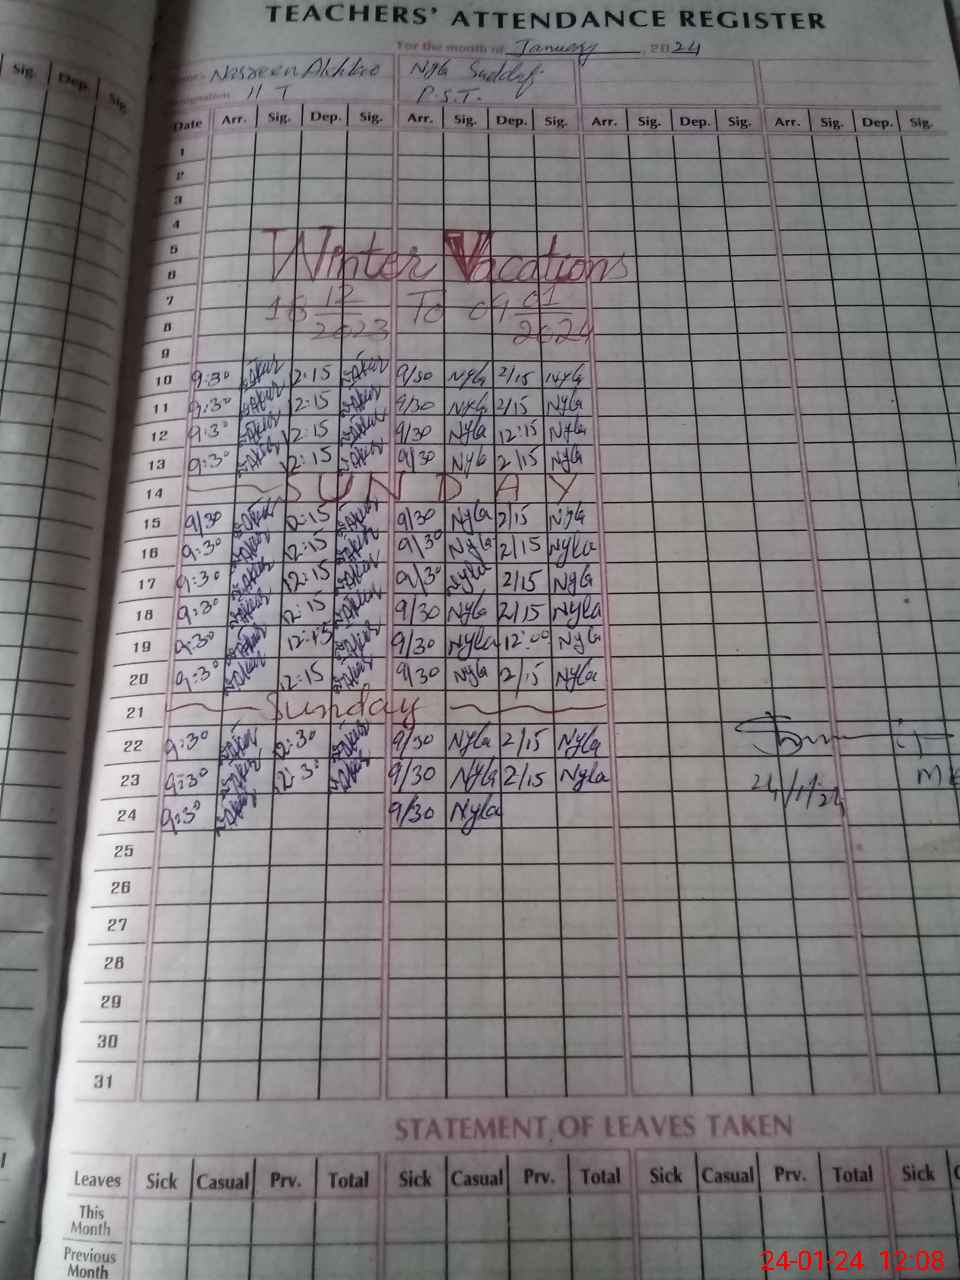 TEACHERS' ATTENDANCE REGISTER
For the month of January, 2024
Sig. Dep. Sig.
Name:- Nasreen Akhtar Nyla Saddaf
Designation H T P.S.T.
Date Arr. Sig. Dep. Sig. Arr. Sig. Dep. Sig. Arr. Sig. Dep. Sig. Arr. Sig. Dep. Sig.
1
2
3
4
5
6
Winter Vacations
7
8
12 To 09 01
2023 2024
9
10 9:30 2:15 9/30 Nyla 2/15 Nyla
11 9:30 2:15 9/30 Nyla 2/15 Nyla
12 9:30 12:15 9/30 Nyla 12:15 Nyla
13 9:30 12:15 9/30 Nyla 2/15 Nyla
14 SUNDAY
15 9/30 12:15 9/30 Nyla 2/15 Nyla
16 9:30 12:15 9/30 Nyla 2/15 Nyla
17 9:30 12:15 9/30 Nyla 2/15 Nyla
18 9:30 12:15 9/30 Nyla 2/15 Nyla
19 9:30 12:15 9/30 Nyla 12:00 Nyla
20 9:30 12:15 9/30 Nyla 2/15 Nyla
21 Sunday
22 9:30 12:30 9/30 Nyla 2/15 Nyla
23 9:30 12:30 9/30 Nyla 2/15 Nyla
24/1/24
24 9:30 9/30 Nyla
25
26
27
28
29
30
31
STATEMENT OF LEAVES TAKEN
Leaves Sick Casual Prv. Total Sick Casual Prv. Total Sick Casual Prv. Total Sick
This Month
Previous Month
24-01-24 12:08